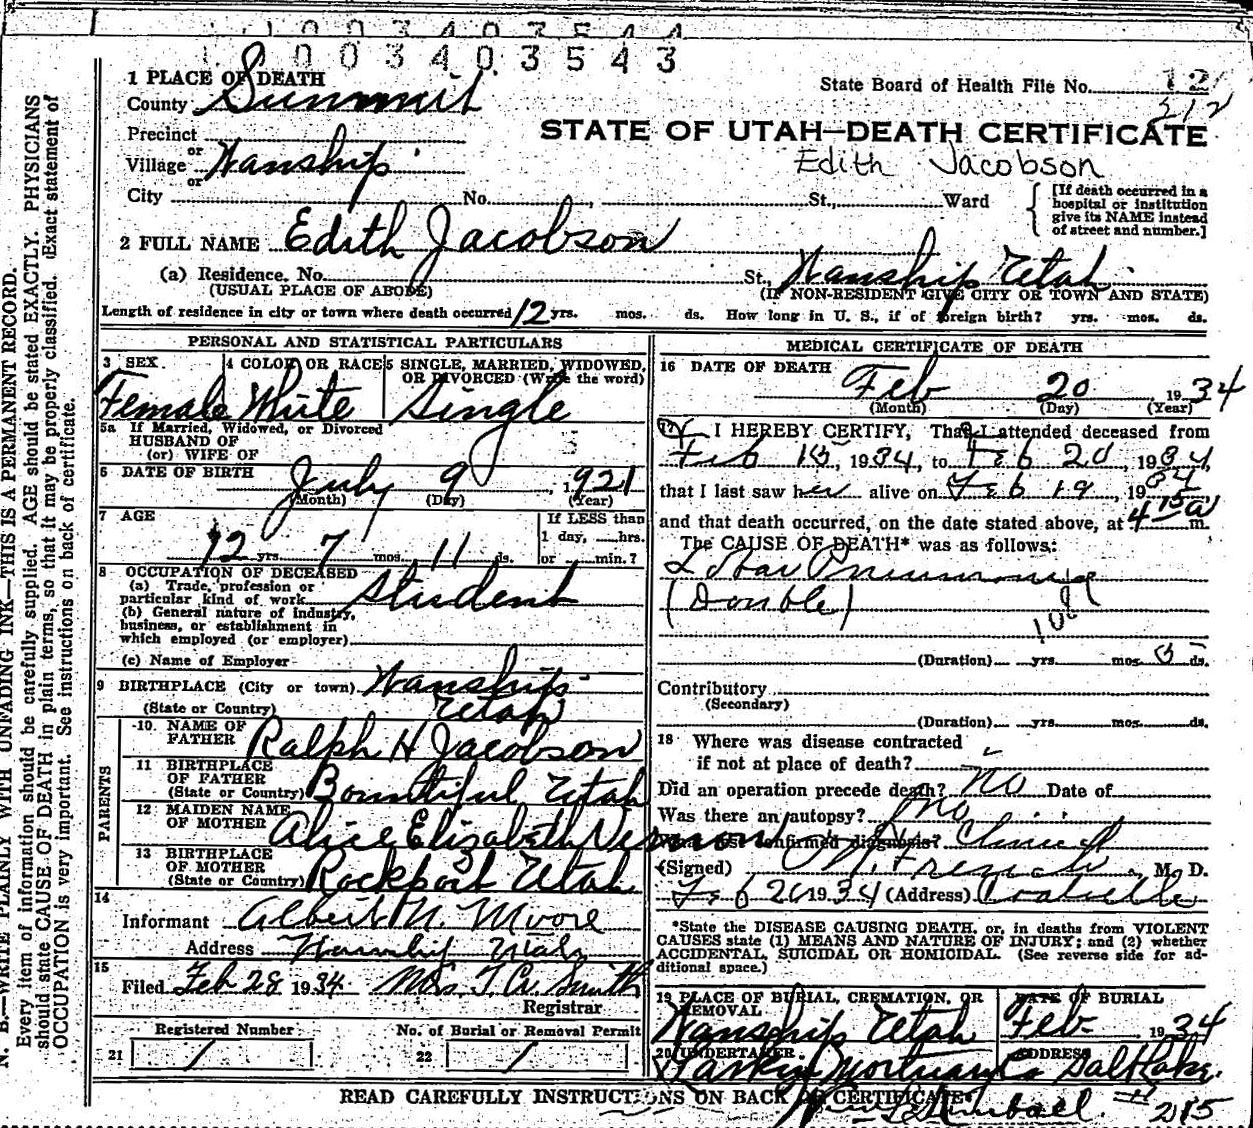 1 0 0 3 4 0 3 5 4 4
1 0 0 3 4 0 3 5 4 3
1 PLACE OF DEATH
State Board of Health File No. 12
County Summit
212
STATE OF UTAH—DEATH CERTIFICATE
Precinct
or
Edith Jacobson
Village Wanship
or
City No. , St., Ward
[If death occurred in a
hospital or institution
give its NAME instead
of street and number.]
2 FULL NAME Edith Jacobson
(a) Residence. No. St., Wanship Utah
(USUAL PLACE OF ABODE)
(IF NON-RESIDENT GIVE CITY OR TOWN AND STATE)
Length of residence in city or town where death occurred 12 yrs. mos. ds. How long in U. S., if of foreign birth? yrs. mos. ds.
PERSONAL AND STATISTICAL PARTICULARS
3 SEX
Female
4 COLOR OR RACE
White
5 SINGLE, MARRIED, WIDOWED,
OR DIVORCED (Write the word)
Single
5a If Married, Widowed, or Divorced
HUSBAND OF
(or) WIFE OF
6 DATE OF BIRTH July 9, 1921
(Month) (Day) (Year)
7 AGE
12 yrs. 7 mos. 11 ds.
If LESS than
1 day, hrs.
or min.?
8 OCCUPATION OF DECEASED
(a) Trade, profession or
particular kind of work Student
(b) General nature of industry,
business, or establishment in
which employed (or employer)
(c) Name of Employer
9 BIRTHPLACE (City or town) Wanship
(State or Country) Utah
PARENTS
10 NAME OF
FATHER Ralph H Jacobson
11 BIRTHPLACE
OF FATHER
(State or Country) Bountiful Utah
12 MAIDEN NAME
OF MOTHER Alice Elizabeth Vernon
13 BIRTHPLACE
OF MOTHER
(State or Country) Rockport Utah
14
Informant Albert N. Moore
Address Wanship Utah
15
Filed Feb 28 1934 Mrs. T. A. Smith
Registrar
Registered Number
21 1
No. of Burial or Removal Permit
22 1
MEDICAL CERTIFICATE OF DEATH
16 DATE OF DEATH
Feb 20, 1934
(Month) (Day) (Year)
17 I HEREBY CERTIFY, That I attended deceased from
Feb 15, 1934, to Feb 20, 1934,
that I last saw her alive on Feb 19, 1934
and that death occurred, on the date stated above, at 4 15 a m.
The CAUSE OF DEATH* was as follows:
Lobar Pneumonia
(Double)
108
(Duration) yrs. mos. 5 ds.
Contributory
(Secondary)
(Duration) yrs. mos. ds.
18 Where was disease contracted
if not at place of death?
Did an operation precede death? No Date of
Was there an autopsy? No
What test confirmed diagnosis? Clinical
(Signed) French, M. D.
Feb 20 1934 (Address) Coalville
*State the DISEASE CAUSING DEATH, or, in deaths from VIOLENT
CAUSES state (1) MEANS AND NATURE OF INJURY; and (2) whether
ACCIDENTAL, SUICIDAL OR HOMICIDAL. (See reverse side for ad-
ditional space.)
19 PLACE OF BURIAL, CREMATION, OR
REMOVAL
Wanship Utah
DATE OF BURIAL
Feb 1934
20 UNDERTAKER
Larkin Mortuary Co
ADDRESS
Salt Lake.
# 2815
READ CAREFULLY INSTRUCTIONS ON BACK OF CERTIFICATE
N. B.—WRITE PLAINLY WITH UNFADING INK—THIS IS A PERMANENT RECORD.
Every item of information should be carefully supplied. AGE should be stated EXACTLY. PHYSICIANS
should state CAUSE OF DEATH in plain terms, so that it may be properly classified. Exact statement of
OCCUPATION is very important. See instructions on back of certificate.